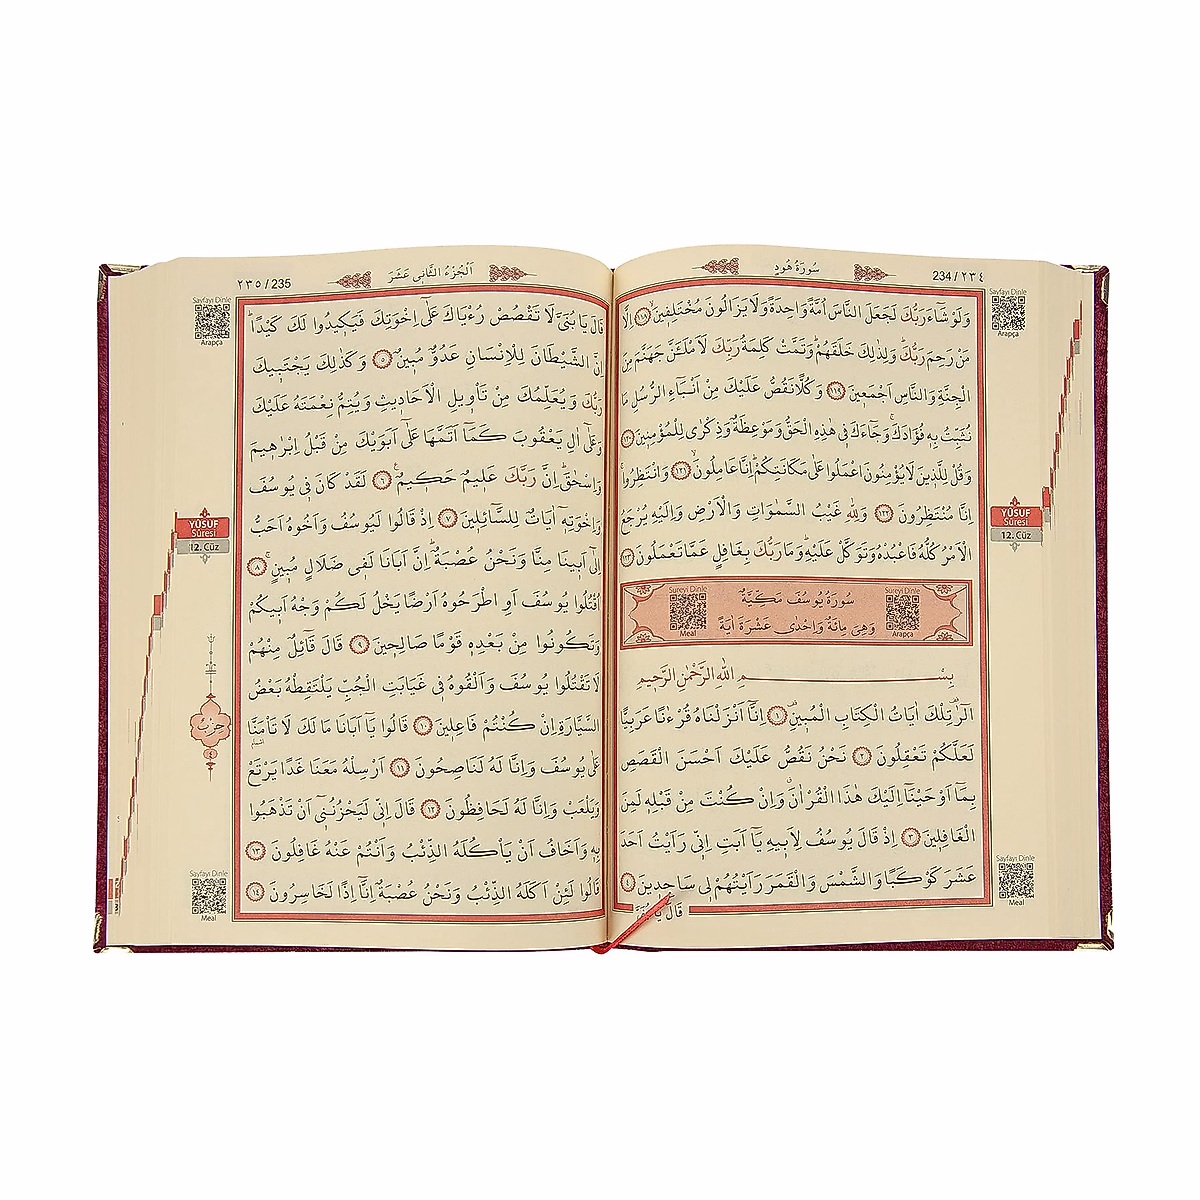 234/٢٣٤
سُورَةُ هُودٍ
Sayfayı Dinle
Arapça
وَلَوْ شَٓاءَ رَبُّكَ لَجَعَلَ النَّاسَ اُمَّةً وَاحِدَةً وَلَا يَزَالُونَ مُخْتَلِف۪ينَۙ ﴿١١٨﴾ اِلَّا
مَنْ رَحِمَ رَبُّكَۜ وَلِذٰلِكَ خَلَقَهُمْۜ وَتَمَّتْ كَلِمَةُ رَبِّكَ لَاَمْلَـَٔنَّ جَهَنَّمَ مِنَ
الْجِنَّةِ وَالنَّاسِ اَجْمَع۪ينَ ﴿١١٩﴾ وَكُلًّا نَقُصُّ عَلَيْكَ مِنْ اَنْبَٓاءِ الرُّسُلِ مَا
نُثَبِّتُ بِه۪ فُؤٰادَكَۚ وَجَٓاءَكَ ف۪ي هٰذِهِ الْحَقُّ وَمَوْعِظَةٌ وَذِكْرٰى لِلْمُؤْمِن۪ينَ ﴿١٢٠﴾
وَقُلْ لِلَّذ۪ينَ لَا يُؤْمِنُونَ اعْمَلُوا عَلٰى مَكَانَتِكُمْۜ اِنَّا عَامِلُونَۙ ﴿١٢١﴾ وَانْتَظِرُواۚ
اِنَّا مُنْتَظِرُونَ ﴿١٢٢﴾ وَلِلّٰهِ غَيْبُ السَّمٰوَاتِ وَالْاَرْضِ وَاِلَيْهِ يُرْجَعُ
الْاَمْرُ كُلُّهُ فَاعْبُدْهُ وَتَوَكَّلْ عَلَيْهِۜ وَمَا رَبُّكَ بِغَافِلٍ عَمَّا تَعْمَلُونَ ﴿١٢٣﴾
YÛSUF
Sûresi
12. Cüz
Sûreyi Dinle
Arapça
سُورَةُ يُوسُفَ مَكِّيَّةٌ
وَهِيَ مِائَةٌ وَاِحْدٰى عَشْرَةَ اٰيَةً
Sûreyi Dinle
Meal
بِسْــــــمِ اللّٰهِ الرَّحْمٰنِ الرَّح۪يمِ
الٓرٰ تِلْكَ اٰيَاتُ الْكِتَابِ الْمُب۪ينِ۠ ﴿١﴾ اِنَّٓا اَنْزَلْنَاهُ قُرْءٰنًا عَرَبِيًّا
لَعَلَّكُمْ تَعْقِلُونَ ﴿٢﴾ نَحْنُ نَقُصُّ عَلَيْكَ اَحْسَنَ الْقَصَصِ
بِمَٓا اَوْحَيْنَٓا اِلَيْكَ هٰذَا الْقُرْاٰنَۗ وَاِنْ كُنْتَ مِنْ قَبْلِه۪ لَمِنَ
الْغَافِل۪ينَ ﴿٣﴾ اِذْ قَالَ يُوسُفُ لِاَب۪يهِ يَٓا اَبَتِ اِنّ۪ي رَاَيْتُ اَحَدَ
عَشَرَ كَوْكَبًا وَالشَّمْسَ وَالْقَمَرَ رَاَيْتُهُمْ ل۪ي سَاجِد۪ينَ ﴿٤﴾
قَالَ يَا بُنَيَّ
Sayfayı Dinle
Meal
٢٣٥/235
اَلْجُزْءُ الثَّان۪ي عَشَرَ
Sayfayı Dinle
Arapça
قَالَ يَا بُنَيَّ لَا تَقْصُصْ رُءْيَاكَ عَلٰٓى اِخْوَتِكَ فَيَك۪يدُوا لَكَ كَيْدًاۜ
اِنَّ الشَّيْطَانَ لِلْاِنْسَانِ عَدُوٌّ مُب۪ينٌ ﴿٥﴾ وَكَذٰلِكَ يَجْتَب۪يكَ
رَبُّكَ وَيُعَلِّمُكَ مِنْ تَأْو۪يلِ الْاَحَاد۪يثِ وَيُتِمُّ نِعْمَتَهُ عَلَيْكَ
وَعَلٰٓى اٰلِ يَعْقُوبَ كَمَٓا اَتَمَّهَا عَلٰٓى اَبَوَيْكَ مِنْ قَبْلُ اِبْرٰه۪يمَ
وَاِسْحٰقَۜ اِنَّ رَبَّكَ عَل۪يمٌ حَك۪يمٌ۟ ﴿٦﴾ لَقَدْ كَانَ ف۪ي يُوسُفَ
وَاِخْوَتِه۪ٓ اٰيَاتٌ لِلسَّٓائِل۪ينَ ﴿٧﴾ اِذْ قَالُوا لَيُوسُفُ وَاَخُوهُ اَحَبُّ
اِلٰٓى اَب۪ينَا مِنَّا وَنَحْنُ عُصْبَةٌۜ اِنَّ اَبَانَا لَف۪ي ضَلَالٍ مُب۪ينٍۚ ﴿٨﴾
اُقْتُلُوا يُوسُفَ اَوِ اطْرَحُوهُ اَرْضًا يَخْلُ لَكُمْ وَجْهُ اَب۪يكُمْ
وَتَكُونُوا مِنْ بَعْدِه۪ قَوْمًا صَالِح۪ينَ ﴿٩﴾ قَالَ قَٓائِلٌ مِنْهُمْ
لَا تَقْتُلُوا يُوسُفَ وَاَلْقُوهُ ف۪ي غَيَابَتِ الْجُبِّ يَلْتَقِطْهُ بَعْضُ
السَّيَّارَةِ اِنْ كُنْتُمْ فَاعِل۪ينَ ﴿١٠﴾ قَالُوا يَٓا اَبَانَا مَا لَكَ لَا تَأْمَنَّا
عَلٰى يُوسُفَ وَاِنَّا لَهُ لَنَاصِحُونَ ﴿١١﴾ اَرْسِلْهُ مَعَنَا غَدًا يَرْتَعْ
وَيَلْعَبْ وَاِنَّا لَهُ لَحَافِظُونَ ﴿١٢﴾ قَالَ اِنّ۪ي لَيَحْزُنُن۪ٓي اَنْ تَذْهَبُوا
بِه۪ وَاَخَافُ اَنْ يَأْكُلَهُ الذِّئْبُ وَاَنْتُمْ عَنْهُ غَافِلُونَ ﴿١٣﴾
قَالُوا لَئِنْ اَكَلَهُ الذِّئْبُ وَنَحْنُ عُصْبَةٌ اِنَّٓا اِذًا لَخَاسِرُونَ ﴿١٤﴾
YÛSUF
Sûresi
12. Cüz
حِزْبُ
٤
Sayfayı Dinle
Meal